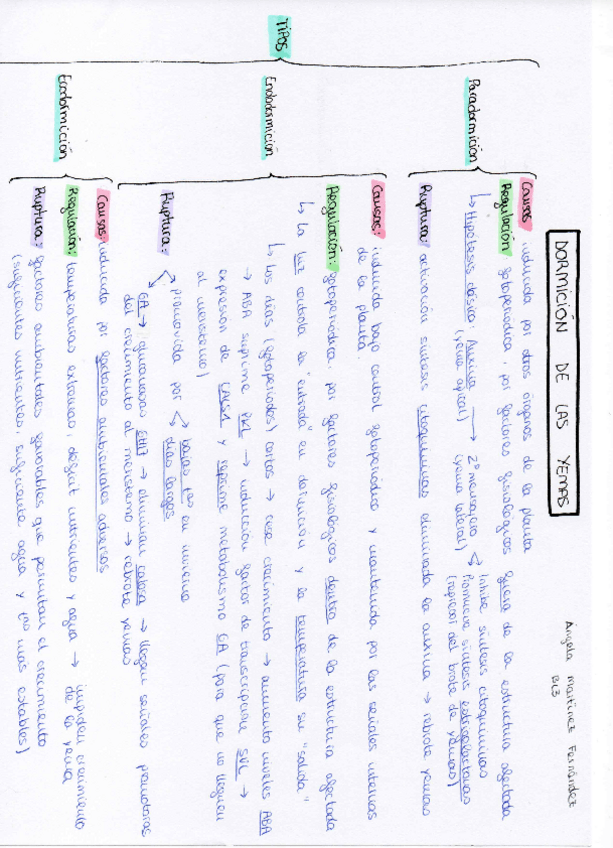 Ángela Martínez Fernández
BL3
DORMICIÓN DE LAS YEMAS
TIPOS
Paradormición
Causas: inducida por otros órganos de la planta
Regulación: fotoperiódica, por factores fisiológicos fuera de la estructura afectada
↳ Hipótesis clásica: Auxina → 2º mensajero < Inhibe síntesis citoquininas
(yema apical) (yema lateral) Promueve síntesis estrigolactonas
(represor del brote de yemas)
Ruptura: activación síntesis citoquininas eliminada la auxina → rebrote yemas
Endodormición
Causas: inducida bajo control fotoperiódico y mantenida por las señales internas
de la planta.
Regulación: fotoperiódica, por factores fisiológicos dentro de la estructura afectada
↳ La luz controla la "entrada" en dormición y la temperatura su "salida"
↳ Los días (fotoperiodos) cortos → cese crecimiento → aumento niveles ABA
→ ABA suprime PKL → inducción factor de transcripción SVL →
expresión de CALS1 y reprime metabolismo GA (para que no lleguen
al meristemo)
Ruptura: promovida por < bajas tas en invierno
días largos
GA → glucanasas GH17 → eliminan calosa → llegan señales promotoras
del crecimiento al meristemo → rebrote yemas
Ecodormición
Causas: inducida por factores ambientales adversos
Regulación: temperaturas extremas, déficit nutrientes y agua → impiden crecimiento
de la yema
Ruptura: factores ambientales favorables que permitan el crecimiento
(suficientes nutrientes, suficiente agua y tas más estables)